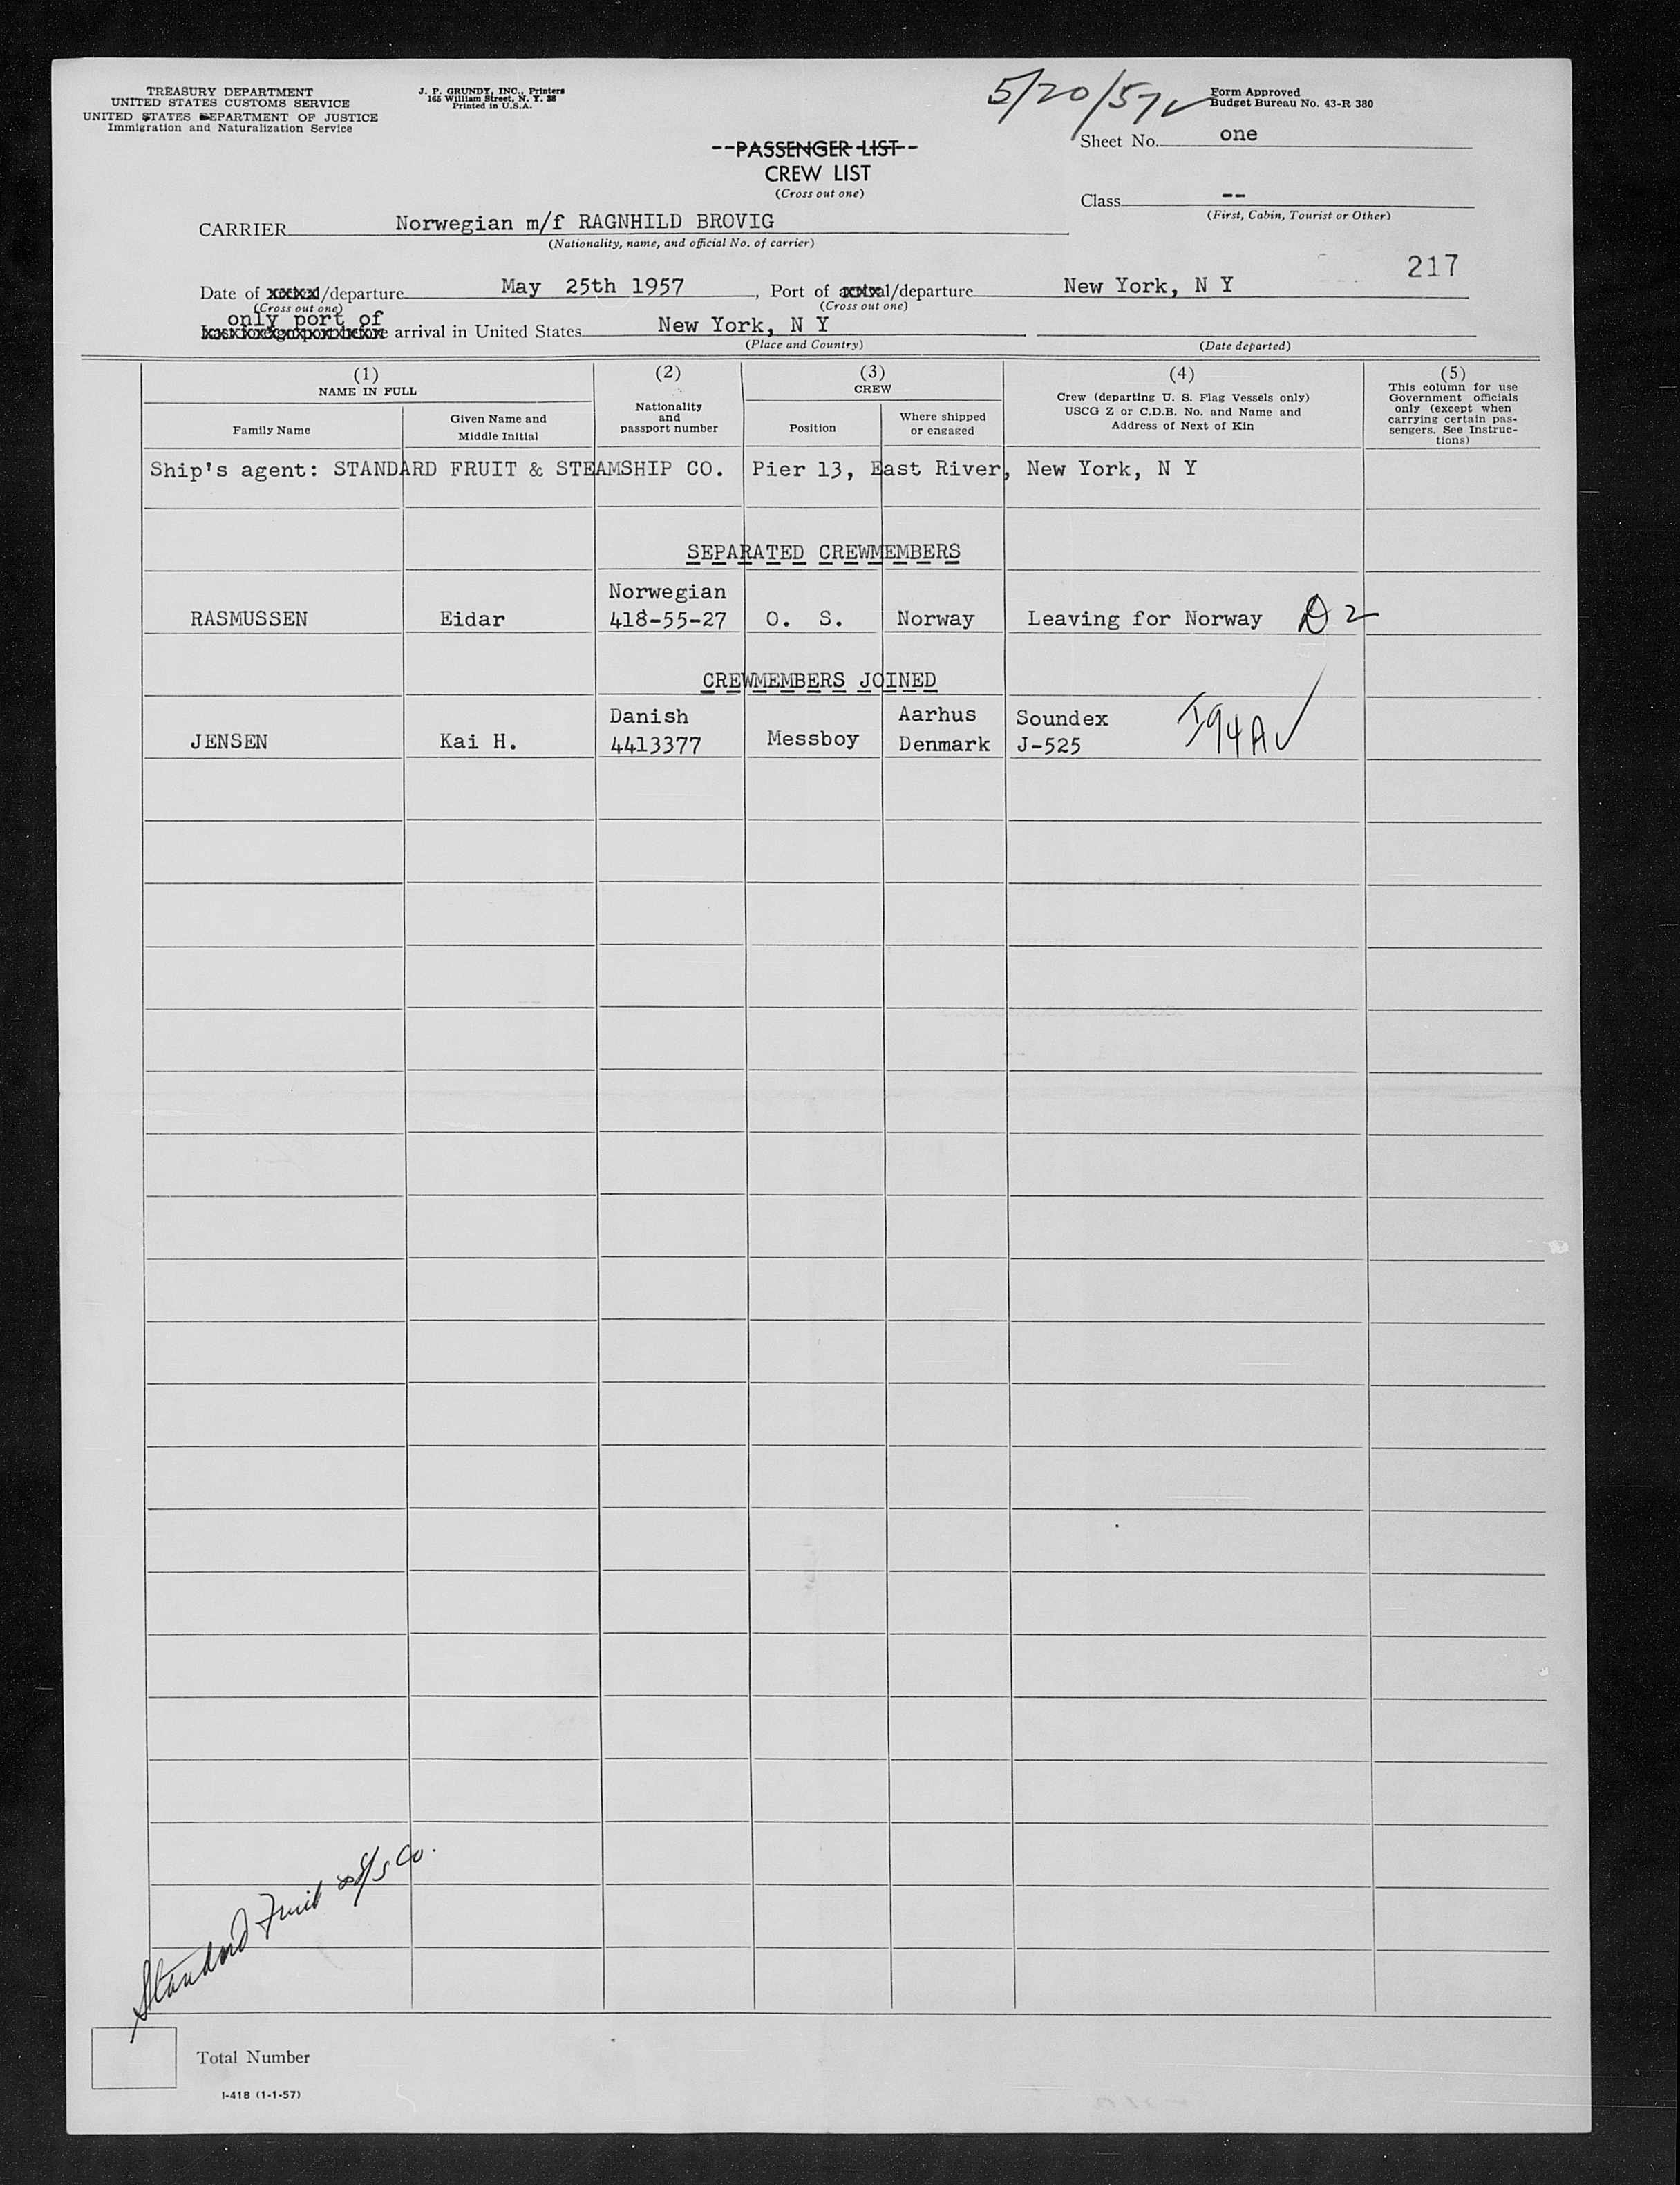 TREASURY DEPARTMENT
UNITED STATES CUSTOMS SERVICE
UNITED STATES DEPARTMENT OF JUSTICE
Immigration and Naturalization Service
J. P. GRUNDY, INC., Printers
165 William Street, N. Y. 38
Printed in U.S.A.
5/20/57
Form Approved
Budget Bureau No. 43-R 380
Sheet No. one
--PASSENGER LIST--
CREW LIST
(Cross out one)
Class --
(First, Cabin, Tourist or Other)
CARRIER Norwegian m/f RAGNHILD BROVIG
(Nationality, name, and official No. of carrier)
217
Date of /departure May 25th 1957, Port of /departure New York, N Y
(Cross out one) (Cross out one)
only port of
arrival in United States New York, N Y
(Place and Country) (Date departed)
(1) (2) (3) (4) (5)
NAME IN FULL
Family Name
Given Name and
Middle Initial
Nationality
and
passport number
CREW
Position
Where shipped
or engaged
Crew (departing U. S. Flag Vessels only)
USCG Z or C.D.B. No. and Name and
Address of Next of Kin
This column for use
Government officials
only (except when
carrying certain pas-
sengers. See Instruc-
tions)
Ship's agent: STANDARD FRUIT & STEAMSHIP CO. Pier 13, East River, New York, N Y
SEPARATED CREWMEMBERS
Norwegian
RASMUSSEN Eidar 418-55-27 O. S. Norway Leaving for Norway D 2
CREWMEMBERS JOINED
Danish Aarhus Soundex
JENSEN Kai H. 4413377 Messboy Denmark J-525 I94A
Standard Fruit & S/S Co.
Total Number
I-418 (1-1-57)